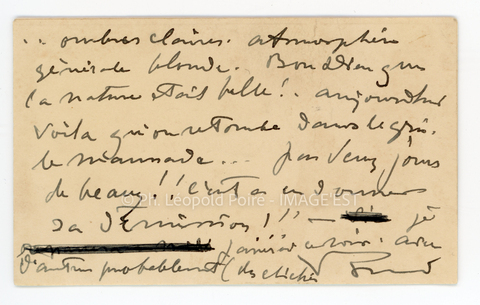 .. ombres claires. atmosphère
générale blonde. Bon dieu que
la nature était belle !.. aujourd'hui
voilà qu'on retombe dans le gris.
le maussade... pas deux jours
de beau !! C'est à en donner
sa démission !! —
© Ph. Léopold Poiré - IMAGE EST
j'aimerai avoir avec
d'autres probablement (des clichés